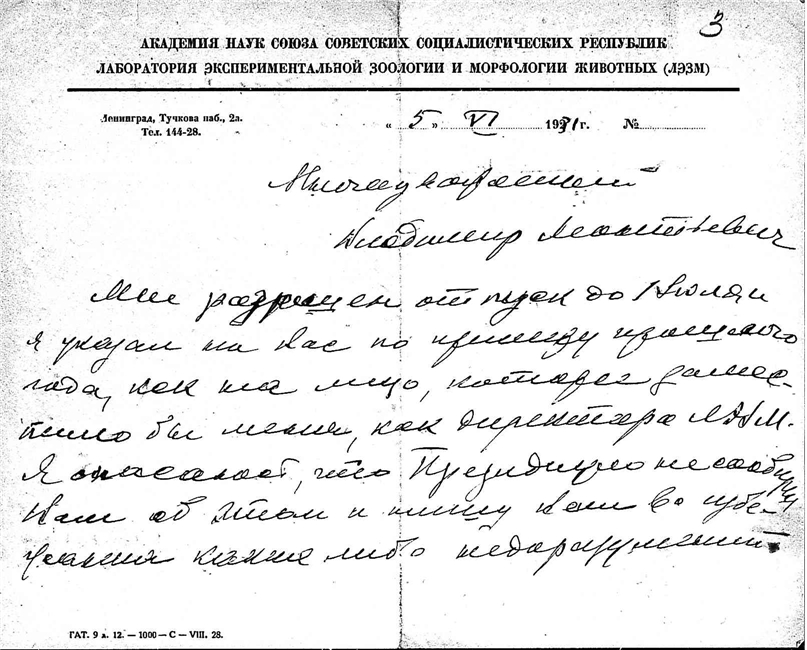 3
АКАДЕМИЯ НАУК СОЮЗА СОВЕТСКИХ СОЦИАЛИСТИЧЕСКИХ РЕСПУБЛИК
ЛАБОРАТОРИЯ ЭКСПЕРИМЕНТАЛЬНОЙ ЗООЛОГИИ И МОРФОЛОГИИ ЖИВОТНЫХ (ЛЭЗМ)
Ленинград, Тучкова наб., 2а.
Тел. 144-28.
« 5 » VI 1931 г. №
Многоуважаемый
Владимир Леонтьевич
Мне разрешен отпуск до 1 Июля и
я указал на Вас по примеру прошлого
года, как на лицо, которое замес-
тило бы меня, как директора
Я опасаюсь, что Президиум не сообщил
Вам об этом и пишу Вам во избе-
жание каких либо недоразумений.
ГАТ. 9 л. 12. — 1000 — С — VIII. 28.